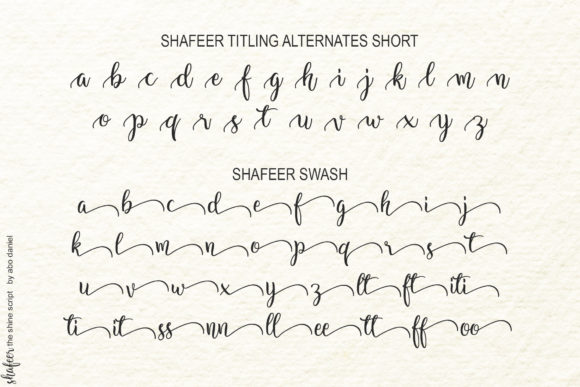 SHAFEER TITLING ALTERNATES SHORT
a b c d e f g h i j k l m n
o p q r s t u v w x y z
SHAFEER SWASH
a b c d e f g h i j
k l m n o p q r s t
u v w x y z lt ft iti
ti it ss nn ll ee tt ff oo
shafeer the shine script by abo daniel